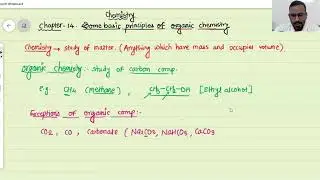 Chemistry
Chapter-14. Some basic principles of organic chemistry
Chemistry → study of matter. (Anything which have mass and occupies volume)
Organic chemistry : study of carbon comp.
e.g. CH4 (Methane) , CH3-CH2-OH [Ethyl alcohol]
Exceptions of organic comp:-
CO2, CO, Carbonate (Na2CO3, NaHCO3, CaCO3